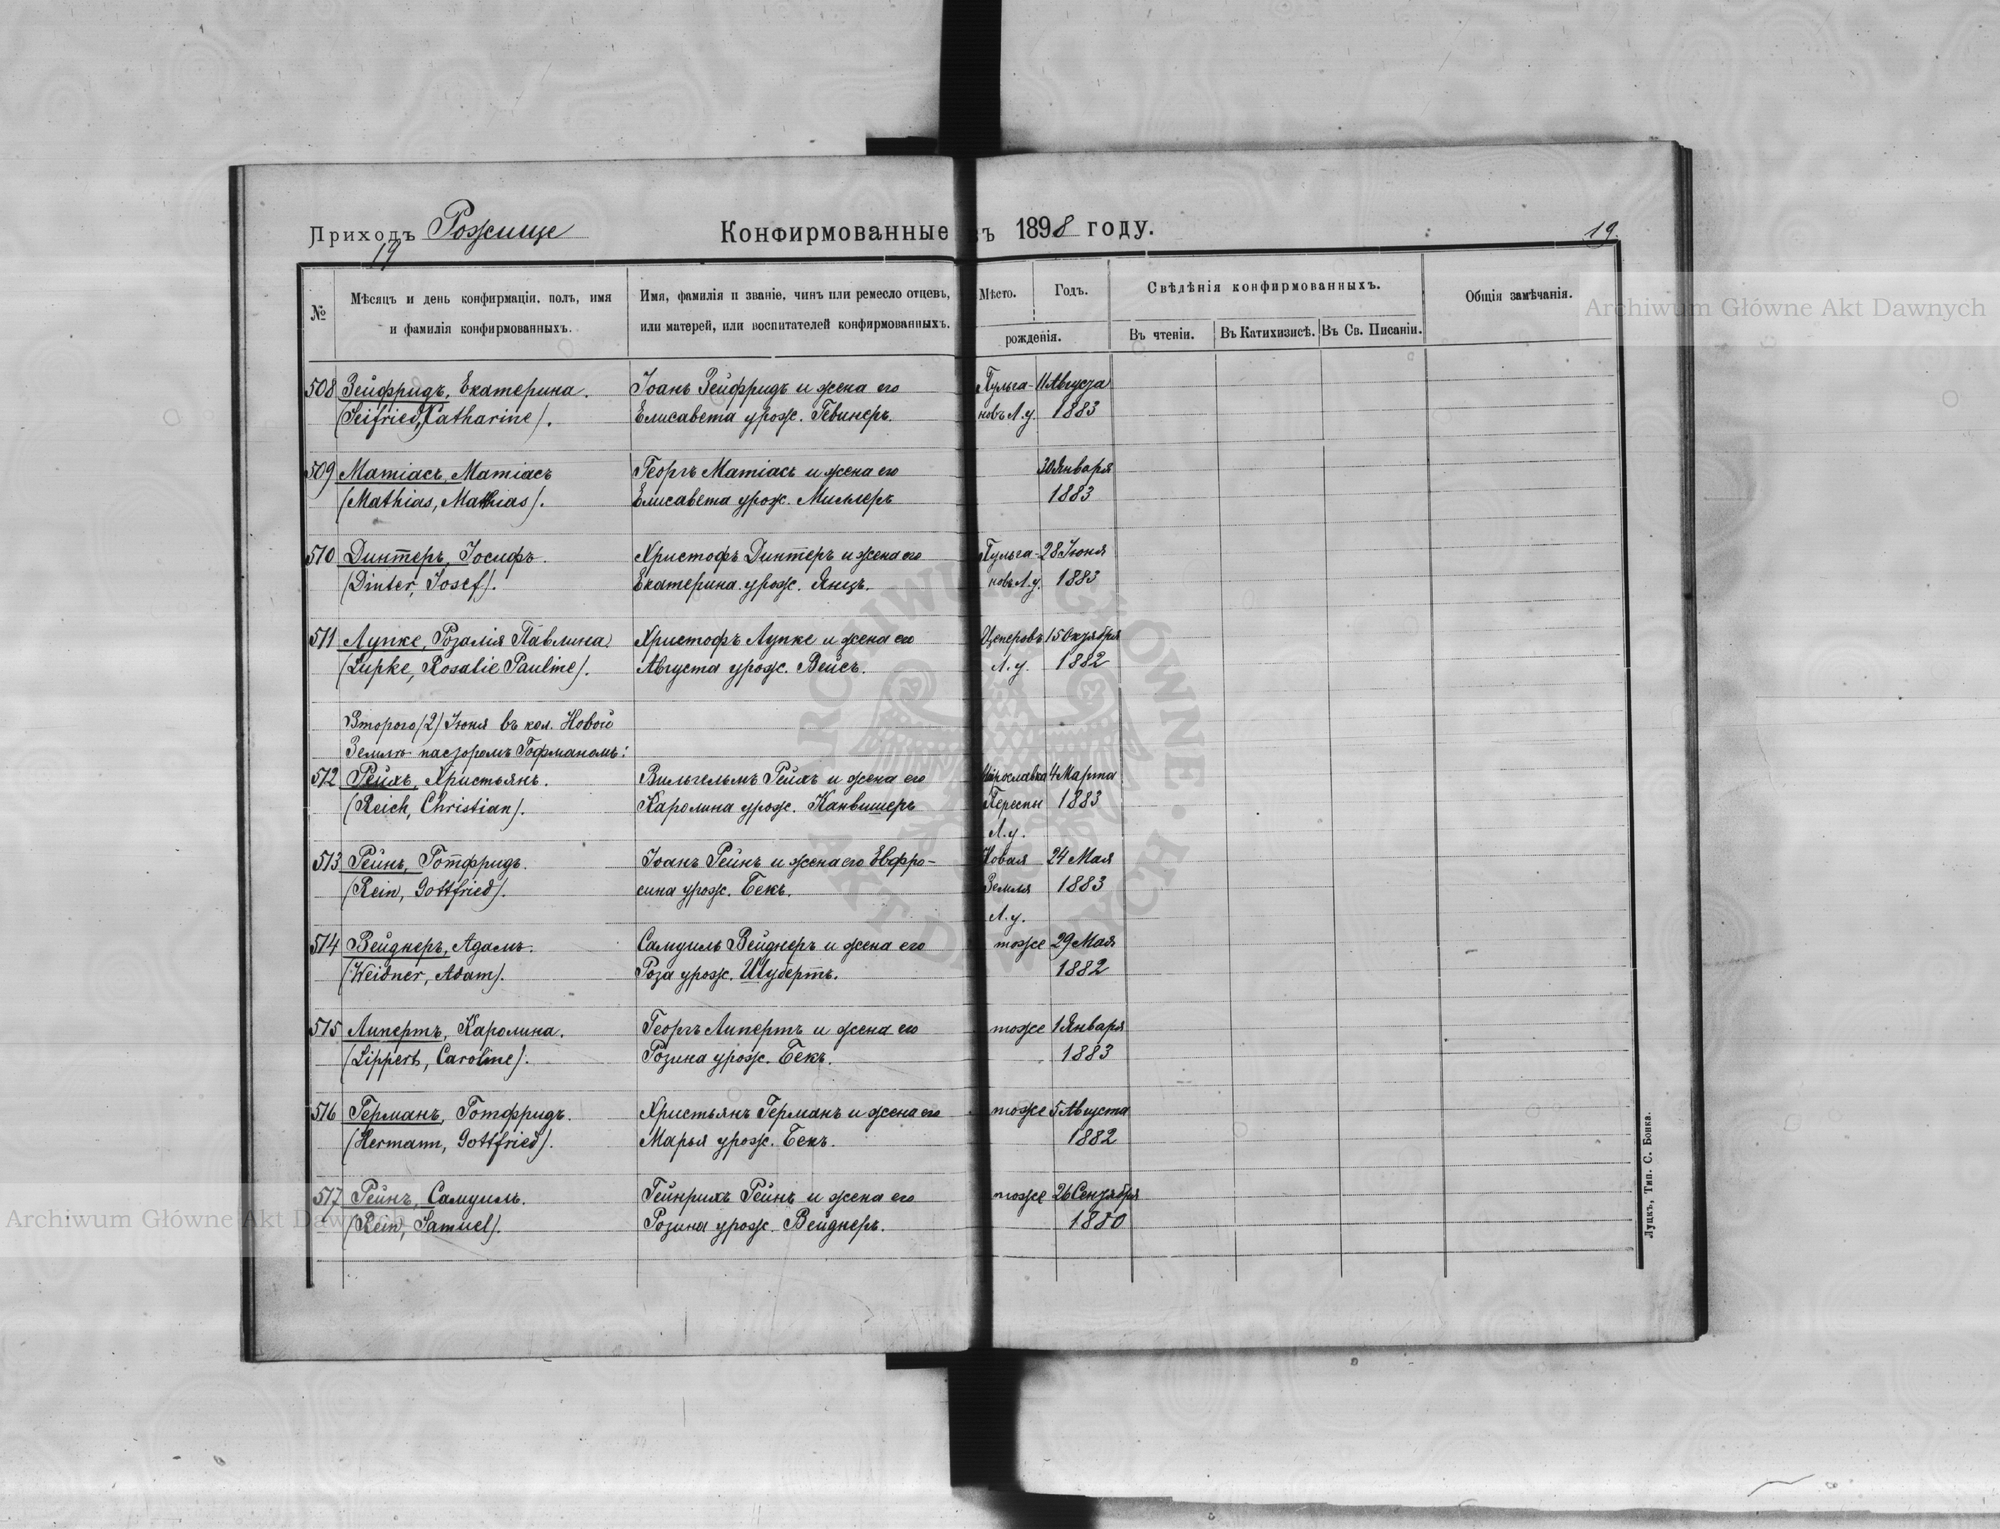 Приходъ Рожище
Конфирмованные въ 1898 году.
19
19.
№
Мѣсяцъ и день конфирмаціи, полъ, имя
и фамилія конфирмованныхъ.
Имя, фамилія и званіе, чинъ или ремесло отцевъ,
или матерей, или воспитателей конфирмованныхъ.
Мѣсто.
Годъ.
рожденія.
Свѣдѣнія конфирмованныхъ.
Въ чтеніи.
Въ Катихизисѣ.
Въ Св. Писаніи.
Общія замѣчанія.
508 Зейфридъ, Екатерина. Іоанъ Зейфридъ и жена его Пульга- 11 Августа
(Seifried, Catharine). Елисавета урож. Гевинеръ. новъ Л.у. 1883
509 Матіасъ, Матіасъ Георгъ Матіасъ и жена его 30 Января
(Mathias, Mathias). Елисавета урож. Миллеръ 1883
510 Динтеръ, Іосифъ. Христофъ Динтеръ и жена его Пульга- 28 Іюня
(Dinter, Josef). Екатерина урож. Янцъ. новъ Л.у. 1883
511 Лупке, Розалія Павлина. Христофъ Лупке и жена его Цеперовъ 15 Октября
(Lupke, Rosalie Pauline). Августа урож. Вейсъ. Л.у. 1882
Второго (2) Іюня въ кол. Новой
Землѣ пасторомъ Гофманомъ:
512 Рейхъ, Христьянъ. Вильгельмъ Рейхъ и жена его Мирославка 4 Марта
(Reich, Christian). Каролина урож. Канвишеръ Пересны 1883
Л.у.
513 Рейнъ, Готфридъ. Іоанъ Рейнъ и жена его Эвфро- Новая 24 Мая
(Rein, Gottfried). сина урож. Бекъ. Земля 1883
Л.у.
514 Вейднеръ, Адамъ. Самуилъ Вейднеръ и жена его тоже 29 Мая
(Weidner, Adam). Роза урож. Шубертъ. 1882
515 Липертъ, Каролина. Георгъ Липертъ и жена его тоже 1 Января
(Lippert, Caroline). Розина урож. Бекъ. 1883
516 Германъ, Готфридъ. Христьянъ Германъ и жена его тоже 5 Августа
(Hermann, Gottfried). Марья урож. Бекъ. 1882
517 Рейнъ, Самуилъ. Гейнрихъ Рейнъ и жена его тоже 26 Сентября
(Rein, Samuel). Розина урож. Вейднеръ. 1880
Луцкъ, Тип. С. Бонка.
Archiwum Główne Akt Dawnych
Archiwum Główne Akt Dawnych
ARCHIWUM GŁÓWNE AKT DAWNYCH